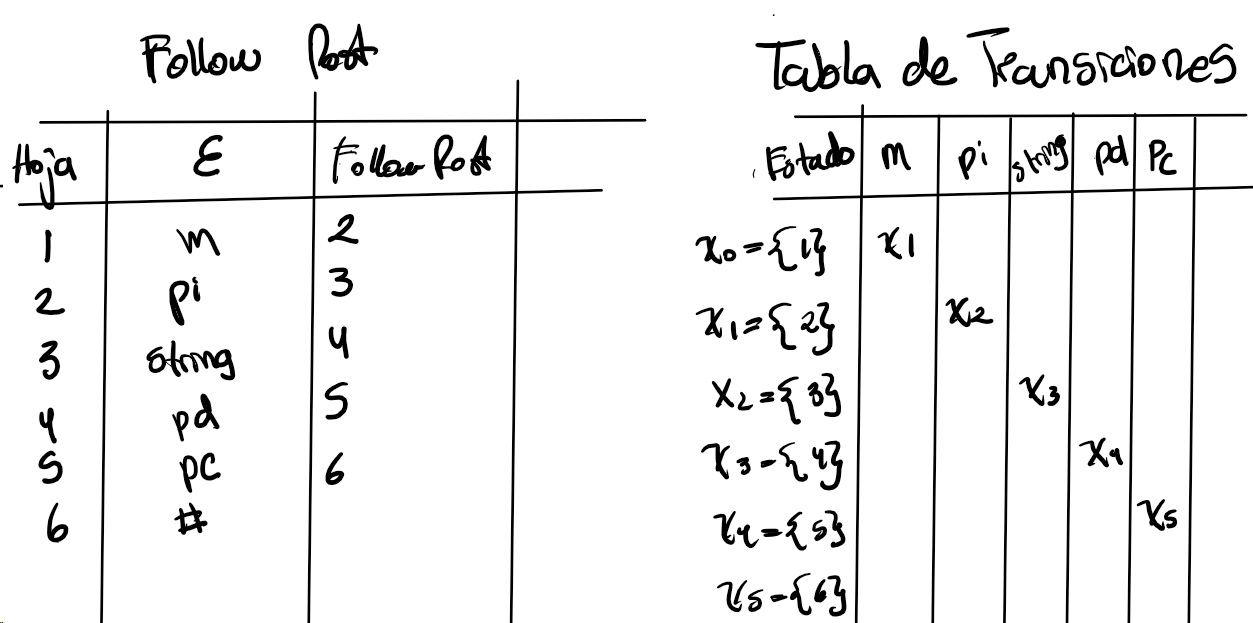 Follow Post
Hoja ε Follow Post
1 m 2
2 pi 3
3 string 4
4 pd 5
5 pc 6
6 #
Tabla de Transiciones
Estado m pi string pd Pc
x0={1} x1
x1={2} x2
x2={3} x3
x3={4} x4
x4={5} x5
x5={6}